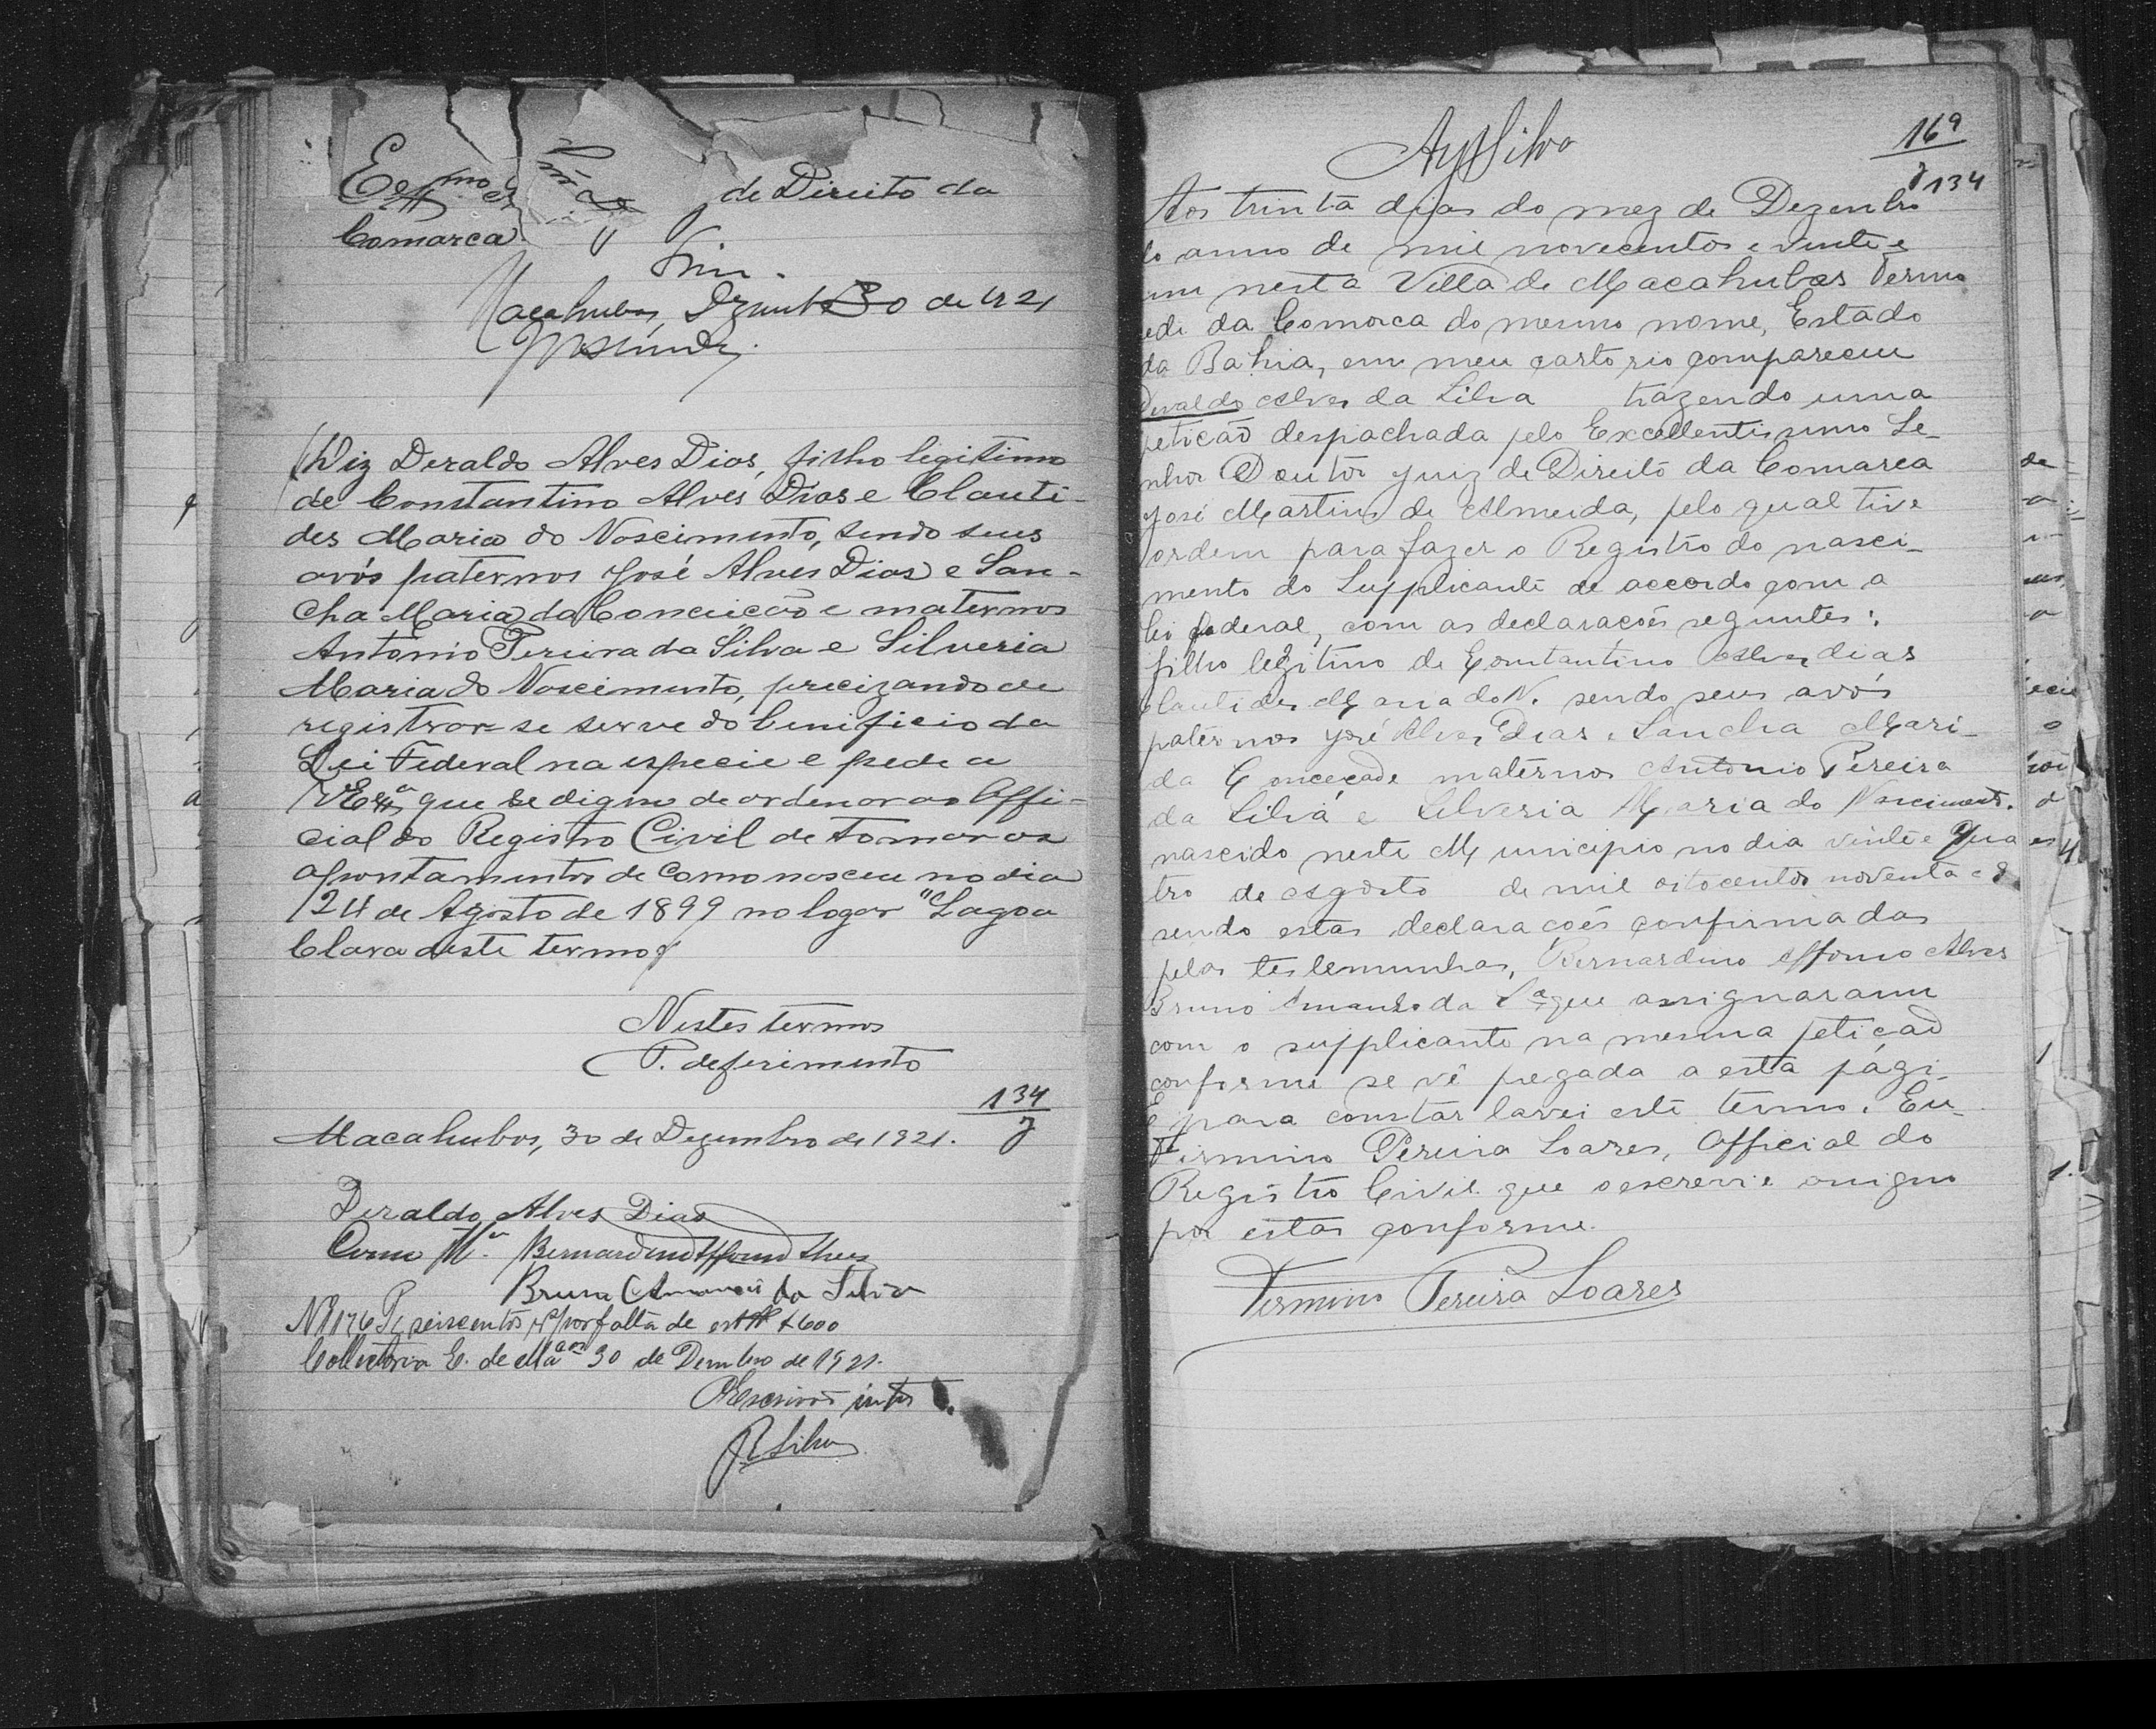 Exmo Snr. Juiz de Direito da
Comarca
Sim.
Macahubas, Dezembro 30 de 1921
Diz Deraldo Alves Dias, filho legitimo
de Constantino Alves Dias e Clauti-
des Maria do Nascimento, sendo seus
avós paternos José Alves Dias e San-
cha Maria da Conceição e maternos
Antonio Pereira da Silva e Silveria
Maria do Nascimento, precizando de
registrar-se serve do benificio da
Lei Federal na especie e pede a
VExª que se digne de ordenar ao Offi-
cial do Registro Civil de tomar os
apontamentos de como nasceu no dia
24 de Agosto de 1899 no logar "Lagoa
Clara deste termo
Nestes termos
P. deferimento
134
Macahubas, 30 de Dezembro de 1921.
Deraldo Alves Dias
Como Tª. Bernardino Affonso Alves
Bruno Amancio da Silva
Nº 176 P. seiscentos rs por falta de estª $600
Collectoria E. de Macas 30 de Dembro de 1921.
O Escrivão intº
RSilva
AyrSilva
169
134
Aos trinta dias do mez de Dezembro
do anno de mil novecentos e vinte e
um nesta Villa de Macahubas Termo
sede da Comarca do mesmo nome, Estado
da Bahia, em meu cartorio compareceu
Deraldo Alves da Silva trazendo uma
petição despachada pelo Excellentissimo Se-
nhor Doutor Juiz de Direito da Comarca
José Martins de Almeida, pelo qual tive
ordem para fazer o Registro do nasci-
mento do Supplicante de accordo com a
lei federal, com as declarações seguntes:
filho legitimo de Constantino Alves dias
Clautides Maria do N. sendo seus avós
paternos José Alves Dias e Sancha Mari-
da Conceçade maternos Antonio Pereira
da Silva e Silveria Maria do Nascimento.
nascido neste Municipio no dia vinte e qua
tro de Agosto de mil oitocentos noventa e 9.
sendo estas declarações confirmadas
pelas testemunhas, Bernardino Affonso Alves
Bruno Amancio da Sª que assignaram
com o supplicante na mesma petição
conforme se vê pregada a esta pági-
E para constar lavrei este termo. Eu-
Firmino Pereira Soares, Official do
Registro Civil que o escrevi e assigno
por estar conforme.
Firmino Pereira Soares